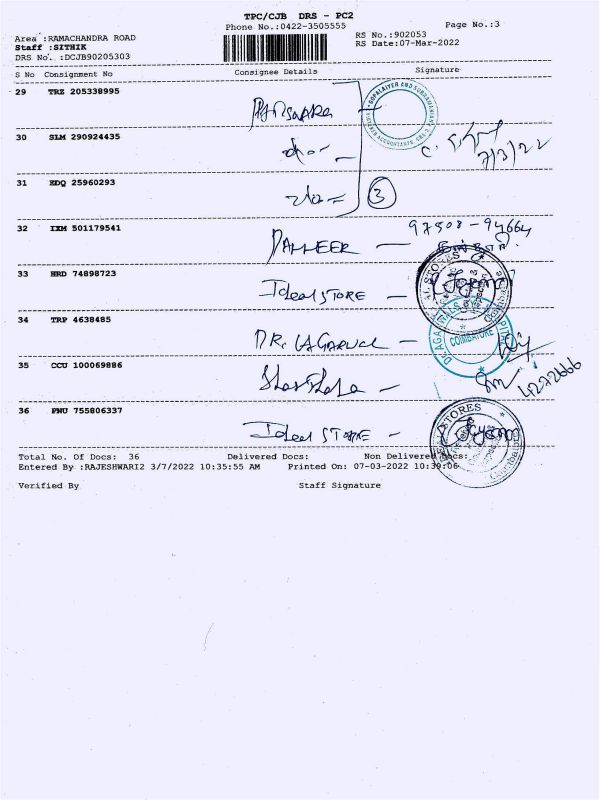 TPC/CJB DRS - PC2
Phone No.:0422-3505555
Page No.:3
Area :RAMACHANDRA ROAD
RS No.:902053
Staff :SITHIK
RS Date:07-Mar-2022
DRS No. :DCJB90205303
S No Consignment No Consignee Details Signature
29 TRZ 205338995
GOPALAIYER AND SUBRAMANIAN
30 SLM 290924435
7/3/22
31 EDQ 25960293
3
32 IXM 501179541
97508-94664
33 HRD 74898723
Ideal STORE -
34 TRP 4638485
DR. AGARWAL -
COIMBATORE
35 CCU 100069886
4272666
36 PNU 755806337
Ideal STORE -
STORES
Total No. Of Docs: 36 Delivered Docs: Non Delivered Docs:
Entered By :RAJESHWARI2 3/7/2022 10:35:55 AM Printed On: 07-03-2022 10:39:06
Verified By Staff Signature